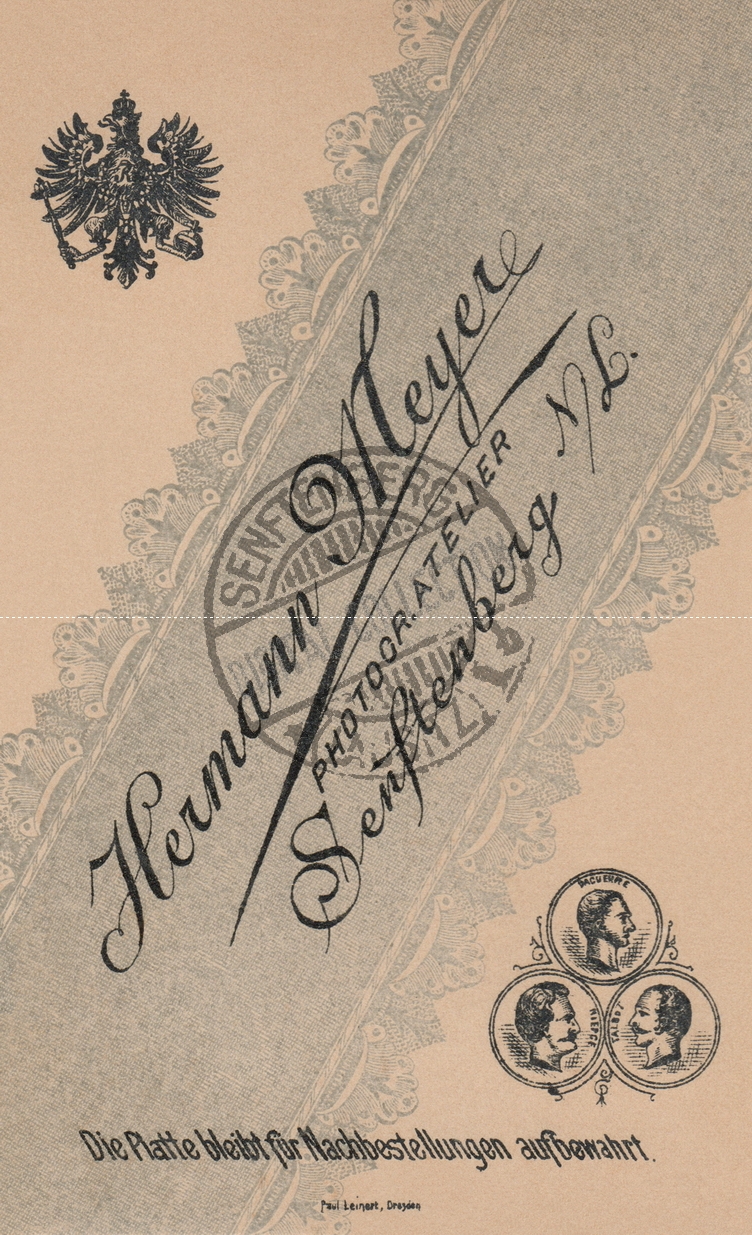 Hermann Meyer
PHOTOGR. ATELIER
Senftenberg N/L.
SENFTENBERG
DAGUERRE
NIEPCE
TALBOT
Die Platte bleibt für Nachbestellungen aufbewahrt.
Paul Leinert, Dresden